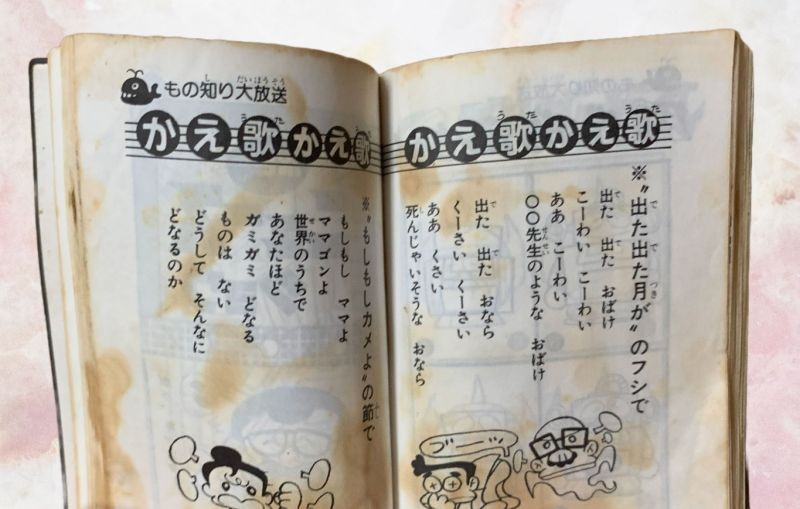 かえ歌かえ歌
※〝出た出た月が〟のフシで
出た 出た おばけ
こーわい こーわい
ああ こーわい
〇〇先生のような おばけ
出た 出た おなら
くーさい くーさい
ああ くさい
死んじゃいそうな おなら
もの知り大放送
かえ歌かえ歌
※〝もしもしカメよ〟の節で
もしもし ママよ
ママゴンよ
世界のうちで
あなたほど
ガミガミ どなる
ものは ない
どうして そんなに
どなるのか